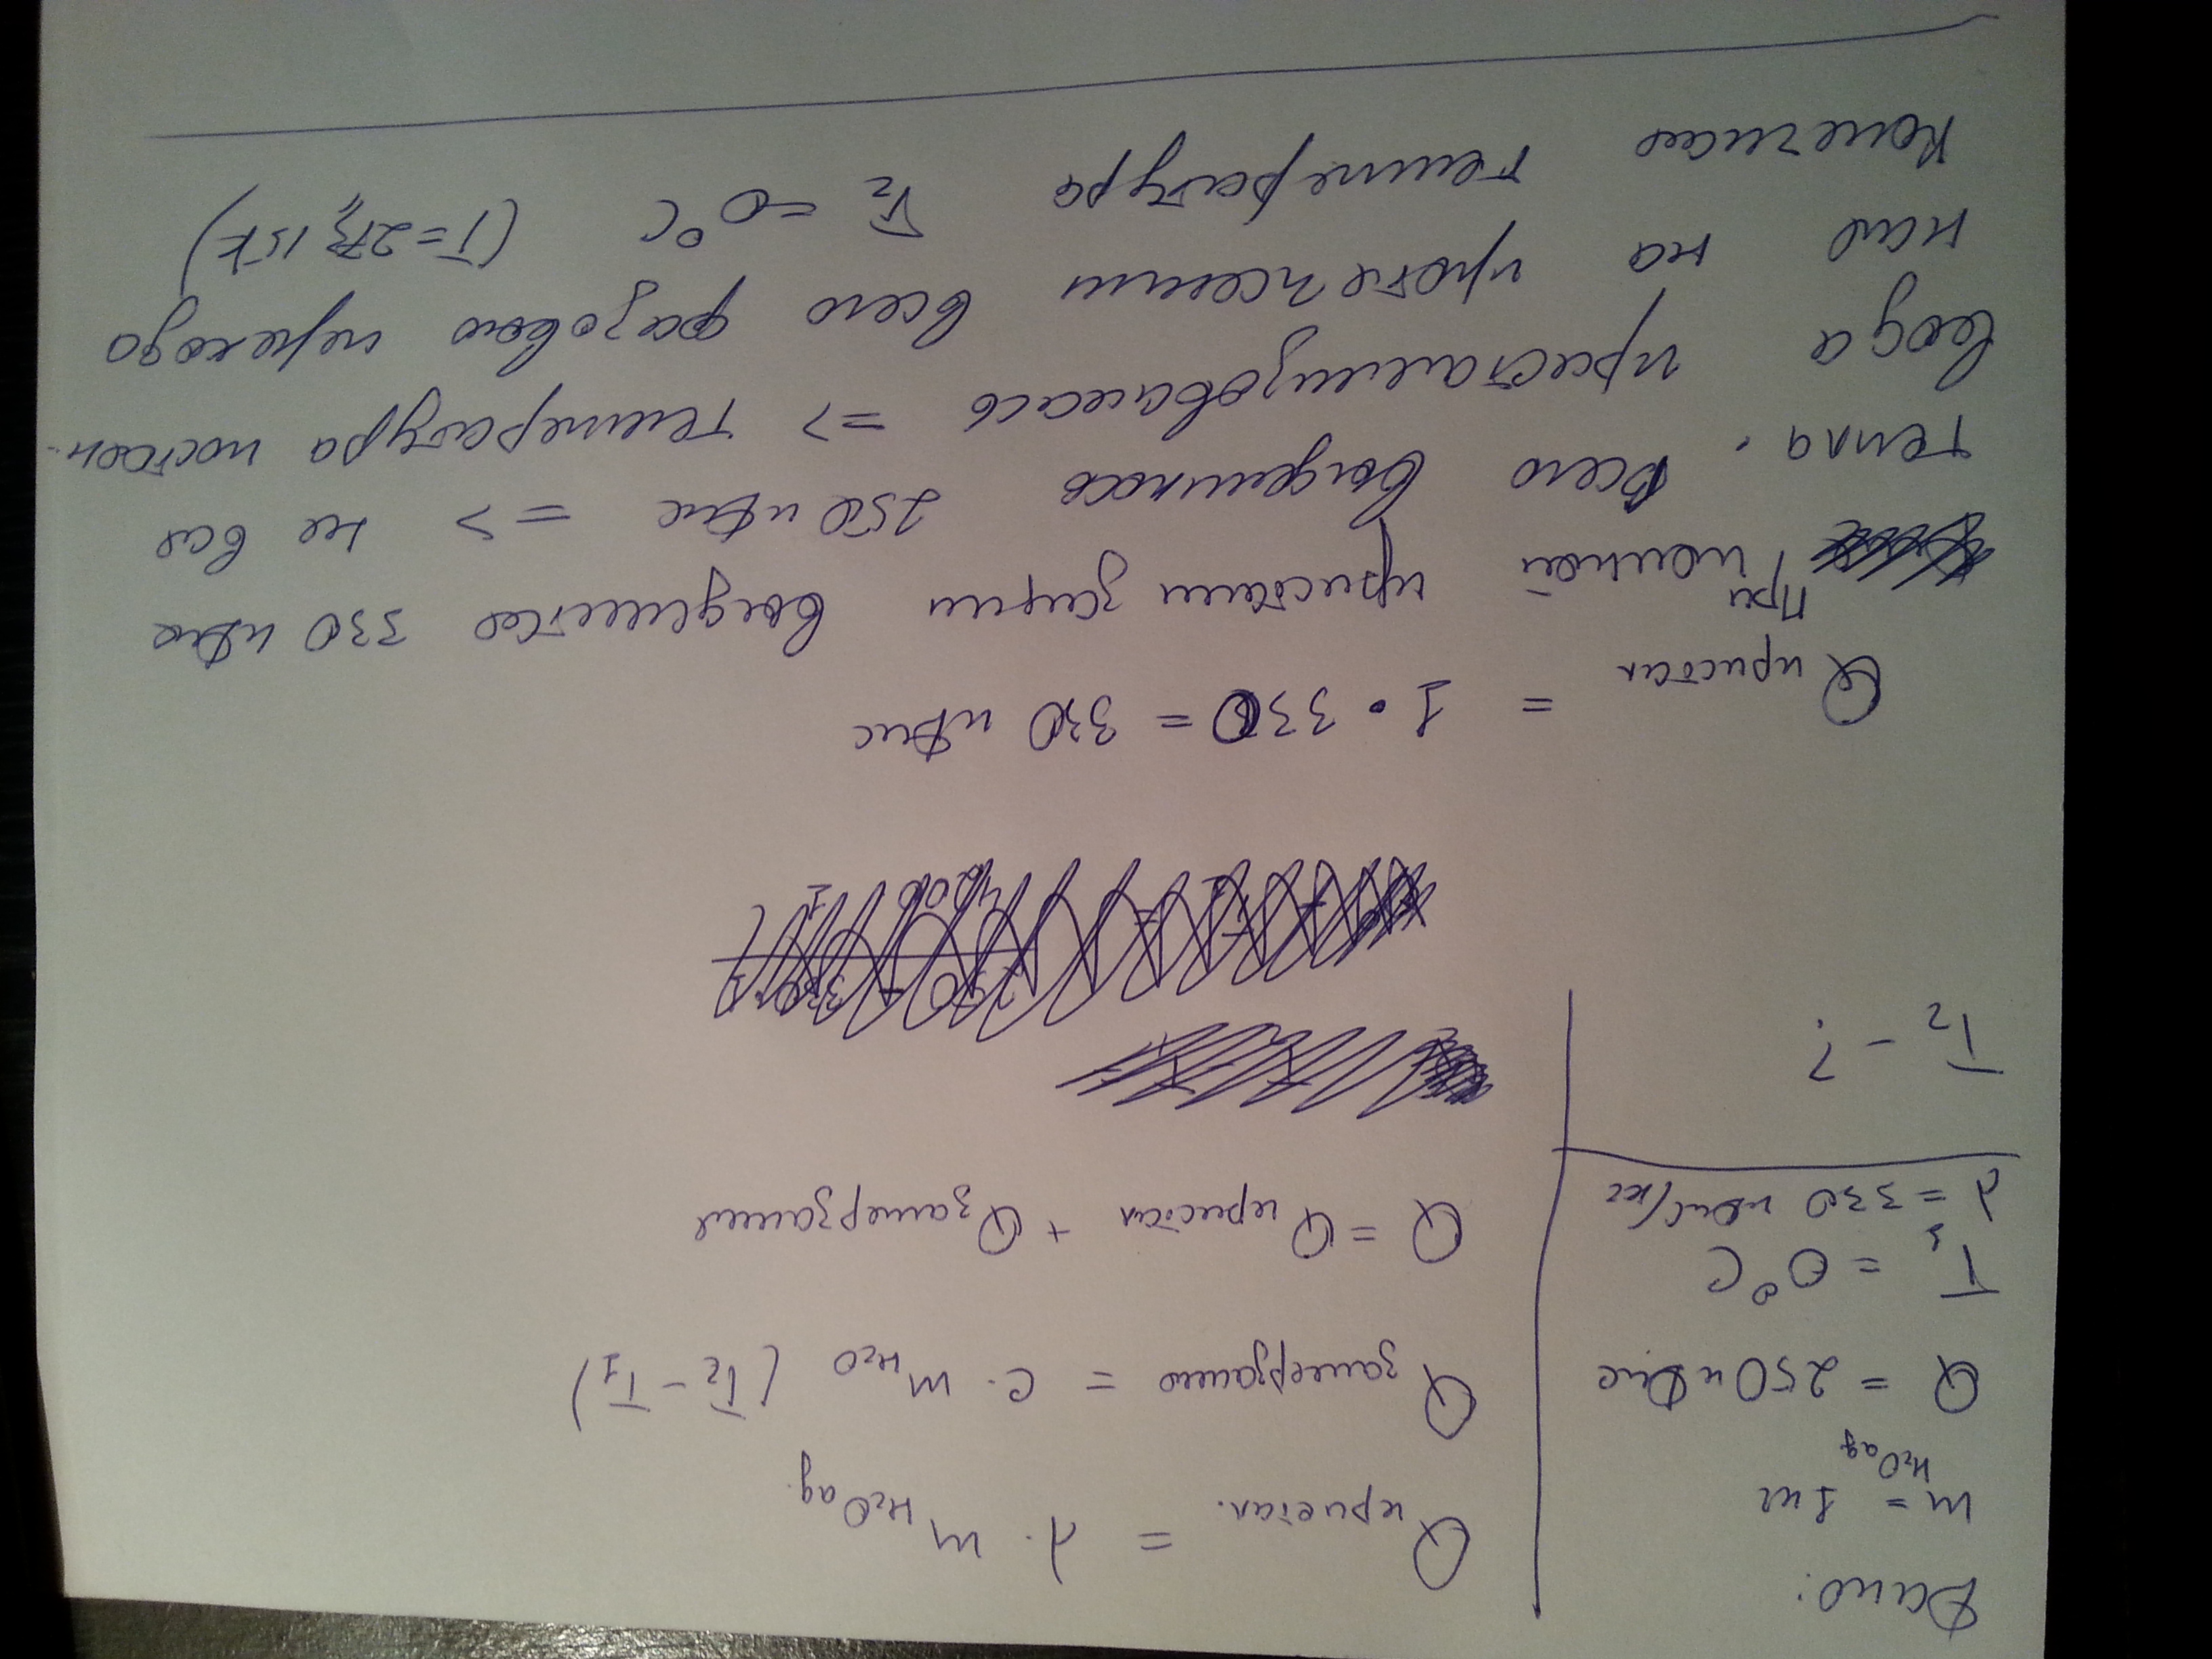 Дано:
m H2O ag = 1 кг
Q = 250 кДж
T1 = 0°C
λ = 330 кДж/кг
T2 - ?
Q кристал. = λ · m H2O ag.
Q замерзание = c · m H2O (T2 - T1)
Q = Q кристал + Q замерзания
Q кристал = 1 · 330 = 330 кДж
При полной кристаллизации выделится 330 кДж
тепла. Всего выделилось 250 кДж => не вся
вода кристаллизовалась => температура постоян-
ная на протяжении всего фазового перехода
Конечная температура T2 = 0°C (T = 273,15 K)